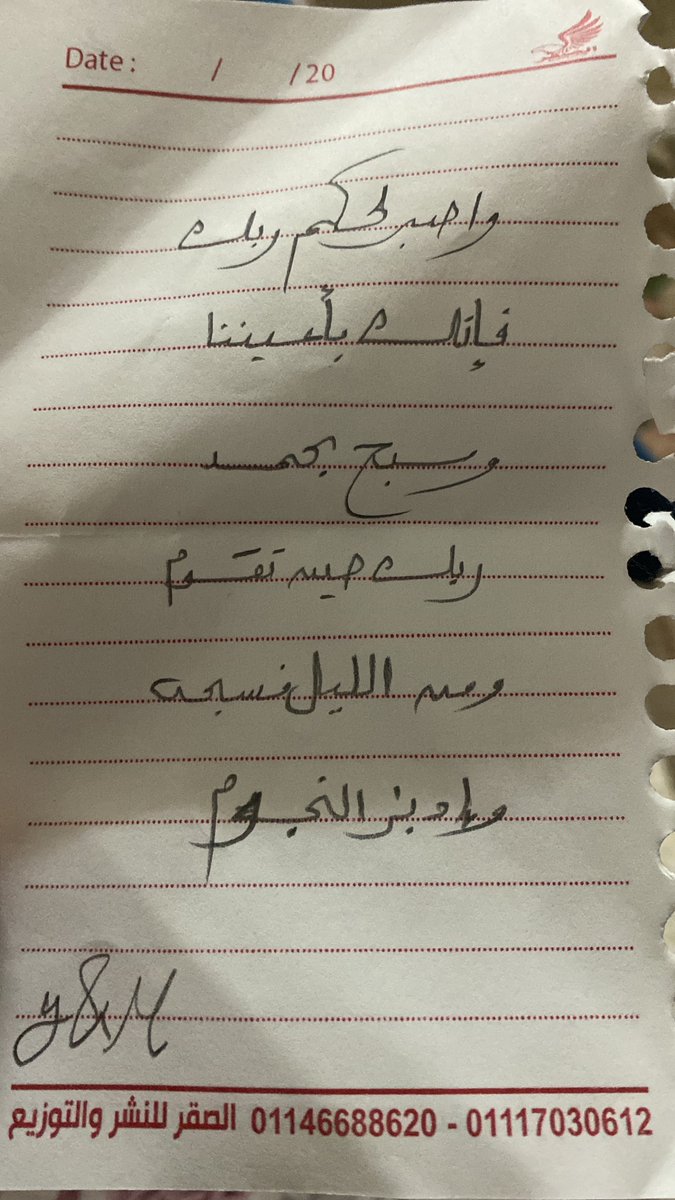 Date : / /20
واصبر لحكم ربك
فإنك بأعيننا
وسبح بحمد
ربك حين تقوم
ومن الليل فسبحه
وإدبر النجوم
y&M
الصقر للنشر والتوزيع 01146688620 - 01117030612